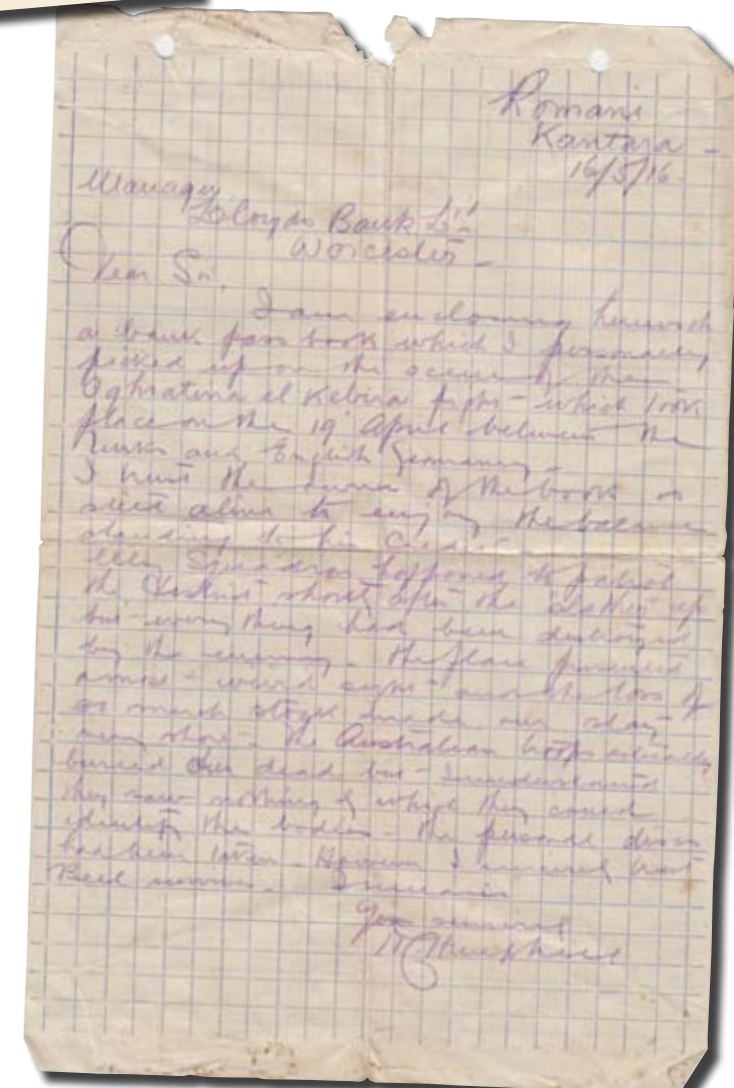 Romani
Kantara -
16/5/16.
Manager
Lloyds Bank Ltd
Worcester -
Dear Sir.
I am enclosing herewith
a bank pass book which I personally
picked up on the scene of the
Oghratina el Kebira fight - which took
place on the 19 April between the
Turks and English Yeomanry -
I trust the owner of the book is
still alive to enjoy the balance
standing to his credit
Squadron happened to patrol
the shortly after the
but every thing had been destroyed
by the enemy. The place presented
a most weird sight - and the loss of
so much made our stay
very short - The Australian troops actually
buried our dead but I understand
they saw nothing by which they could
identify the bodies - the personal discs
had been taken. However I
I remain
Yours